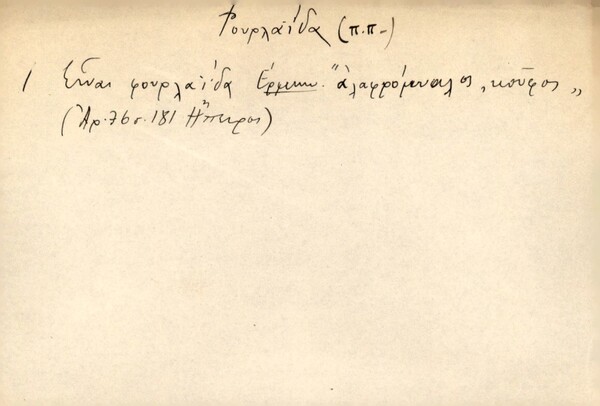 Φουρλαΐδα (π.π-)
1 Εἶναι φουρλαΐδα Ἑρμην. "ἀλαφρόμυαλος, κοῦφος„
(Ἀρ. 76 σ. 181 Ἤπειρος)